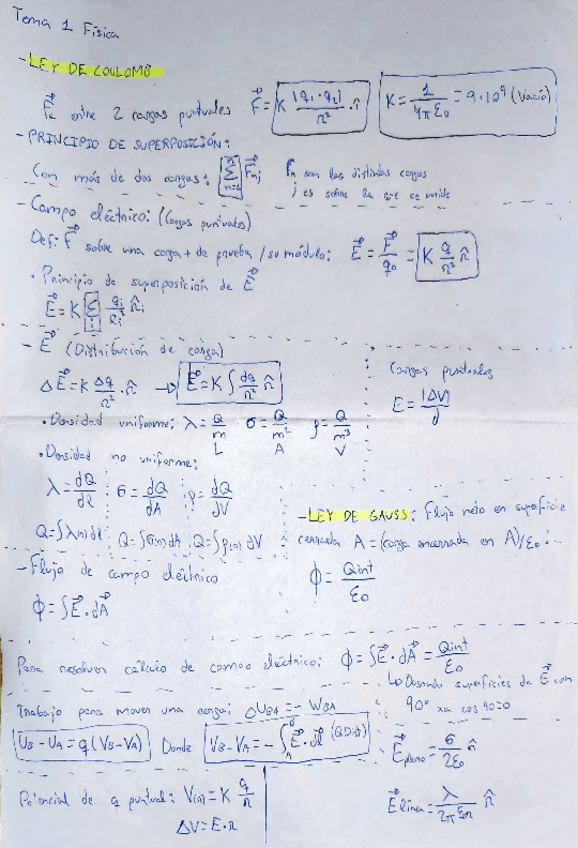 Tema 1 Física
- LEY DE COULOMB
F⃗e entre 2 cargas puntuales F⃗ = K |q₁·q₂|/r² · r̂
K = 1/4πε₀ = 9·10⁹ (Vacío)
- PRINCIPIO DE SUPERPOSICIÓN:
Con más de dos cargas: Σ F⃗nj
n=1
Fn son las distintas cargas
j es sobre la que se mide
- Campo eléctrico: (Cargas puntuales)
Def: F⃗ sobre una carga + de prueba / su módulo: E⃗ = F⃗/q₀ = K q/r² r̂
· Principio de superposición de E⃗
E⃗ = K Σ qi/ri² r̂i
i
- E⃗ (Distribución de carga)
ΔE⃗ = K Δq/r² · r̂ → E⃗ = K ∫ dq/r² r̂
Cargas puntuales
E = |ΔV|/d
· Densidad uniforme: λ = Q/m σ = Q/m² ρ = Q/m³
L A V
· Densidad no uniforme:
λ = dQ/dl σ = dQ/dA ρ = dQ/dV
Q = ∫λ(r)dl Q = ∫σ(r)dA Q = ∫ρ(r)dV
- LEY DE GAUSS: Flujo neto en superficie
cerrada A = (carga encerrada en A)/ε₀:
ϕ = Qint/ε₀
- Flujo de campo eléctrico
ϕ = ∫E⃗·dA⃗
Para resolver cálculo de campo eléctrico: ϕ = ∫E⃗·dA⃗ = Qint/ε₀
↳ Usando superficies de E⃗ con
90° xa cos 90=0
Trabajo para mover una carga: ΔU_BA = - W_BA
U_B - U_A = q(V_B - V_A) Donde V_B - V_A = -∫_A^B E⃗·dl⃗
E⃗plano = σ/2ε₀ r̂
Potencial de q puntual: V(r) = K q/r
ΔV = E·r
E⃗línea = λ/2πε₀r r̂